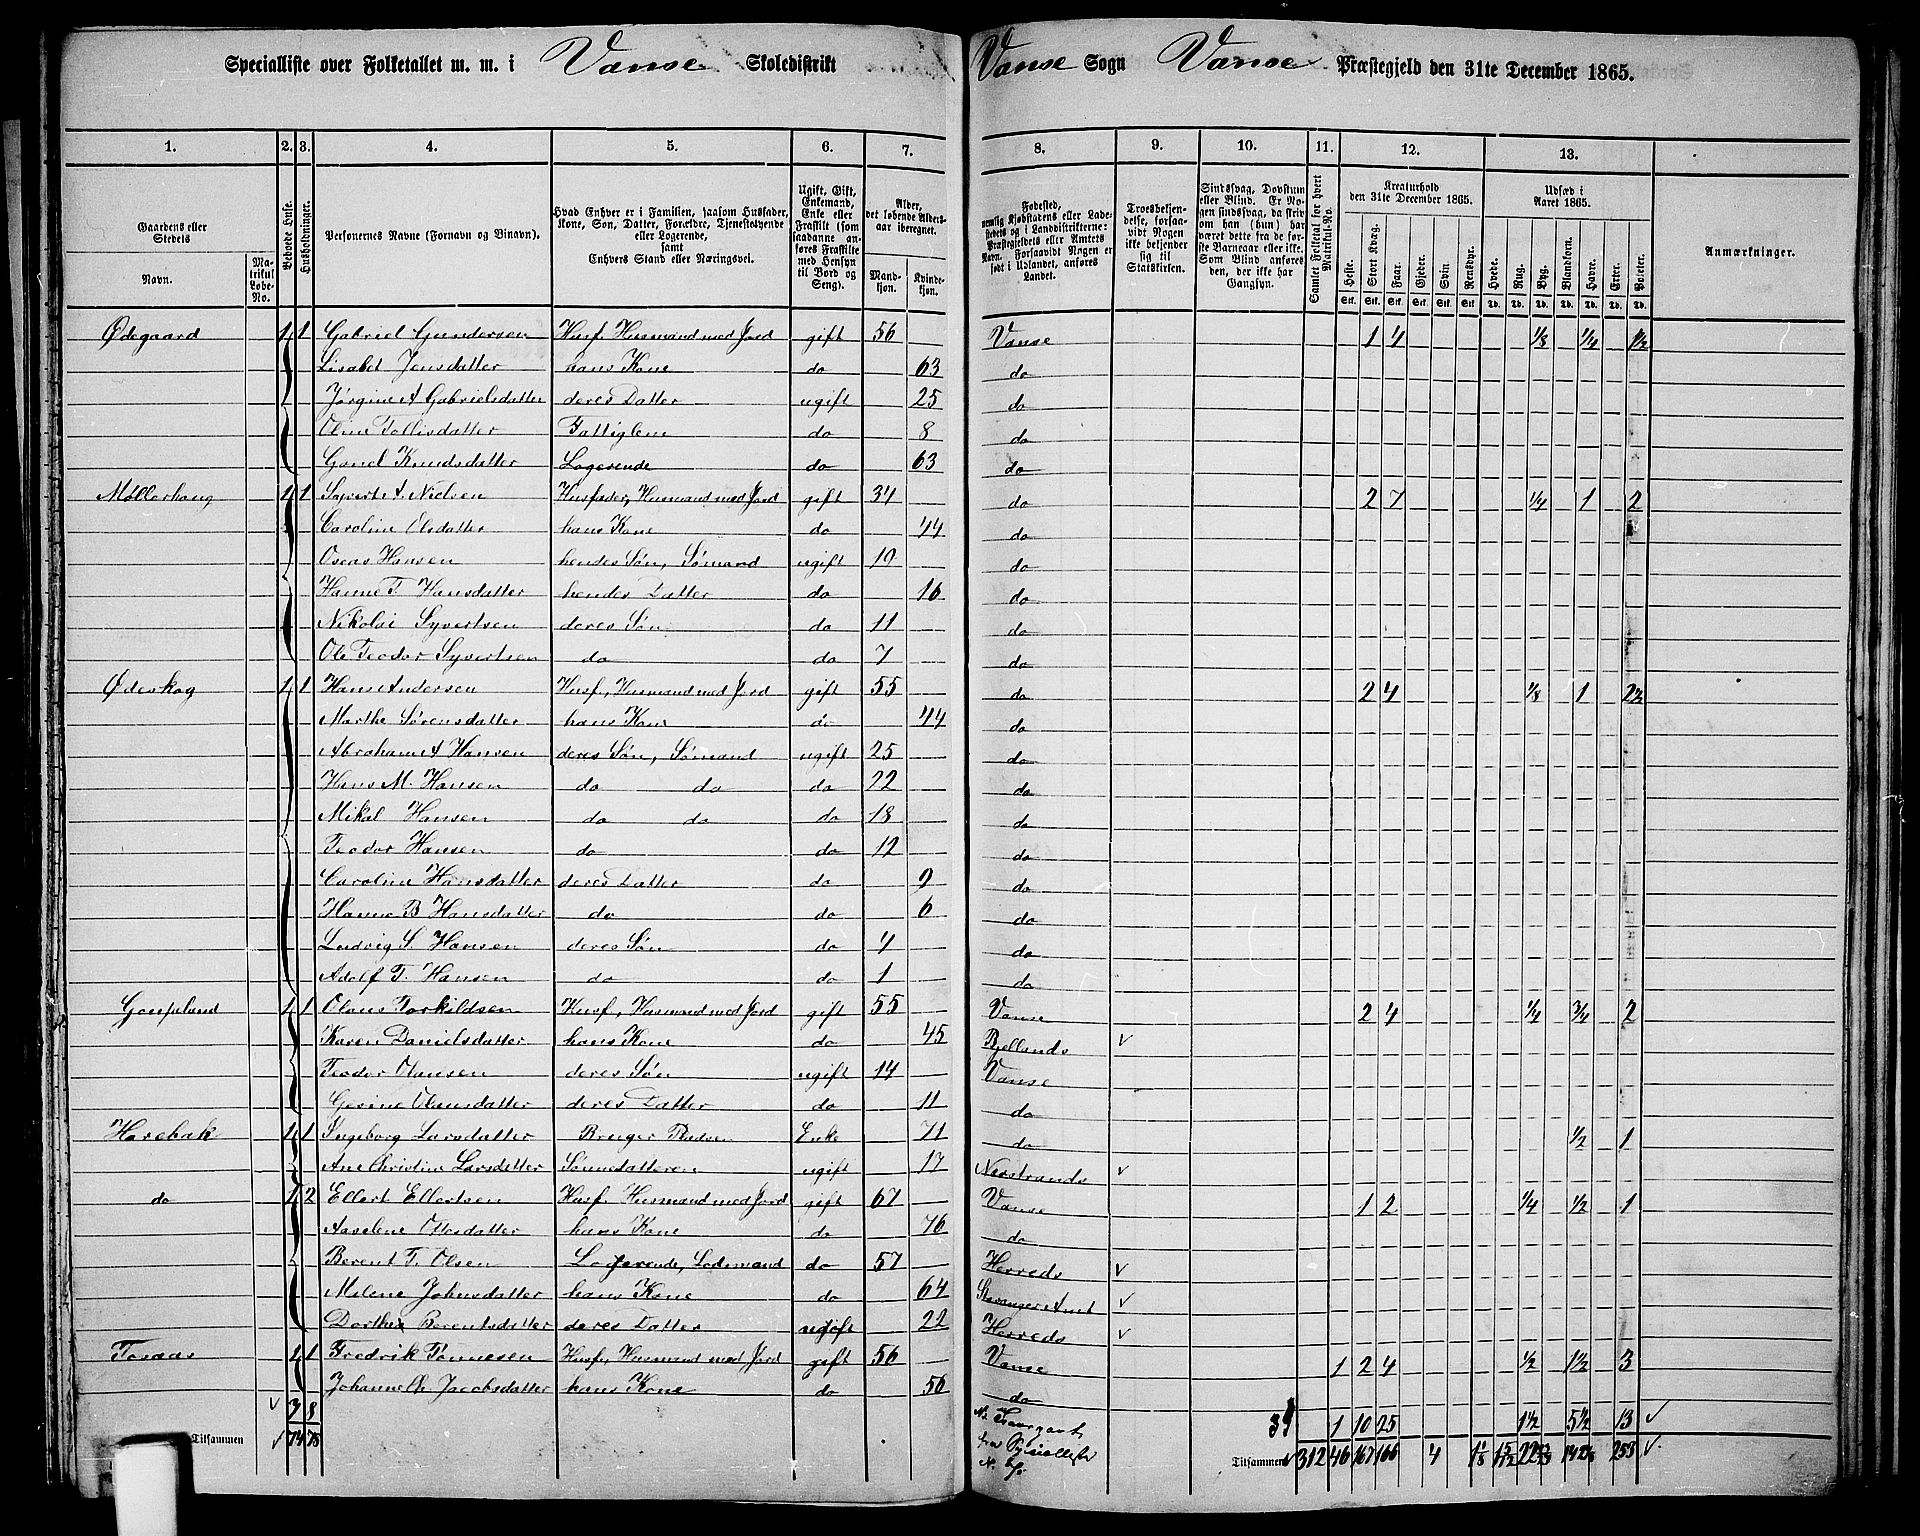 Specialliste over Folketallet m. m. i Vanse Skoledistrikt Vanse Sogn Vanse Præstegjeld den 31te December 1865.
1. 2. 3. 4. 5. 6. 7. 8. 9. 10. 11. 12. 13.
Gaardens eller Stedets Navn. Matrikul Løbe-No. Beboede Huse. Husholdninger. Personernes Navne (Fornavn og Binavn). Hvad Enhver er i Familien, saasom Husfader, Kone, Søn, Datter, Forældre, Tjenestetyende eller Logerende, samt Enhvers Stand eller Næringsvei. Ugift, Gift, Enkemand, Enke eller Fraskilt (som saadanne anføres Fraskilte med Hensyn til Bord og Seng). Alder, det løbende Aldersaar iberegnet. Mandkjøn. Kvindekjøn.
Fødested, nemlig Kjøbstadens eller Ladestedets og i Landdistrikterne: Præstegjeldets eller Amtets Navn. Forsaavidt Nogen er født i Udlandet, anføres Landet. Troesbekjendelse, forsaavidt Nogen ikke bekjender sig til Statskirken. Sindssvag, Døvstum eller Blind. Er Nogen sindssvag, da skriv om han (hun) har været dette fra de første Barneaar eller ikke. Som Blind anføres den, der ikke har Gangsyn. Samlet Folketal for hvert Matrikul-No. Kreaturhold den 31te December 1865. Heste. Stort Kvæg. Faar. Gjeder. Svin Rensdyr. Udsæd i Aaret 1865. Hvede. Rug. Byg. Blandkorn. Havre. Erter. Poteter. Anmærkninger.
Stk. Stk. Stk. Stk. Stk. Stk. Td. Td. Td. Td. Td. Td. Td.
Ødegaard 1 1 Gabriel Gundersen Husf, Husmand med Jord gift 56 Vanse 1 4 1/8 1/4 1½
Lisabet Jensdatter hans Kone do 63 do
Jørgine A Gabrielsdatter deres Datter ugift 25 do
Oline Tollisdatter Fattiglem do 8 do
Gunel Knudsdatter Logerende do 63 do
Møllerhaug 1 1 Syvert A Nielsen Husfader, Husmand med Jord gift 34 do 2 7 1/4 1 2
Caroline Olsdatter hans Kone do 44 do
Oscar Hansen hendes Søn, Sømand ugift 19 do
Hanne T. Hansdatter hendes Datter do 16 do
Nikolai Syvertsen deres Søn do 11 do
Ole Teodor Syvertsen do do 7 do
Ødeskog 1 1 Hans Andersen Husf, Husmand med Jord gift 55 do 2 4 1/8 1 2½
Marthe Sørensdatter hans Kone do 44 do
Abraham A Hansen deres Søn, Sømand ugift 25 do
Hans M. Hansen do do do 22 do
Mikal Hansen do do do 18 do
Teodor Hansen do do 12 do
Caroline Hansdatter deres Datter do 9 do
Hanne B Hansdatter do do 6 do
Ludvig S. Hansen deres Søn do 4 do
Adolf T. Hansen do do 1 do
1 1 Olaus Torkildsen Husf, Husmand med Jord gift 55 Vanse 2 4 1/4 3/4 2
Karen Danielsdatter hans Kone do 45 Bjellands v
Teodor Olausen deres Søn ugift 14 Vanse
Gesine Olausdatter deres Datter do 11 do
Harebak 1 1 Ingeborg Larsdatter Bruger Pladsen Enke 71 do ½ 1
Ane Christine Larsdatter Sønnedatteren ugift 17 Nerstrands v
do 1 2 Ellert Ellertsen Husf. Husmand med Jord gift 67 Vanse 1 2 1/4 ½ 1
Aaselene Ottosdatter hans Kone do 76 do
Berent T. Olsen Logerende, Lodsmand do 57 Herreds v
Malene Johnsdatter hans Kone do 64 Stavanger Amt v
Dorthea Berentsdatter deres Datter ugift 22 Herreds v
Tosaas 1 1 Fredrik Tønnesen Husf, Husmand med Jord gift 56 Vanse 1 2 4 ½ 1½ 3
Johanne Ch Jacobsdatter hans Kone do 56 do
v 7 8 1 10 25 1½ 5½ 13 v
Tilsammen v 74 78 Tilsammen 312 46 167 166 4 253 v.